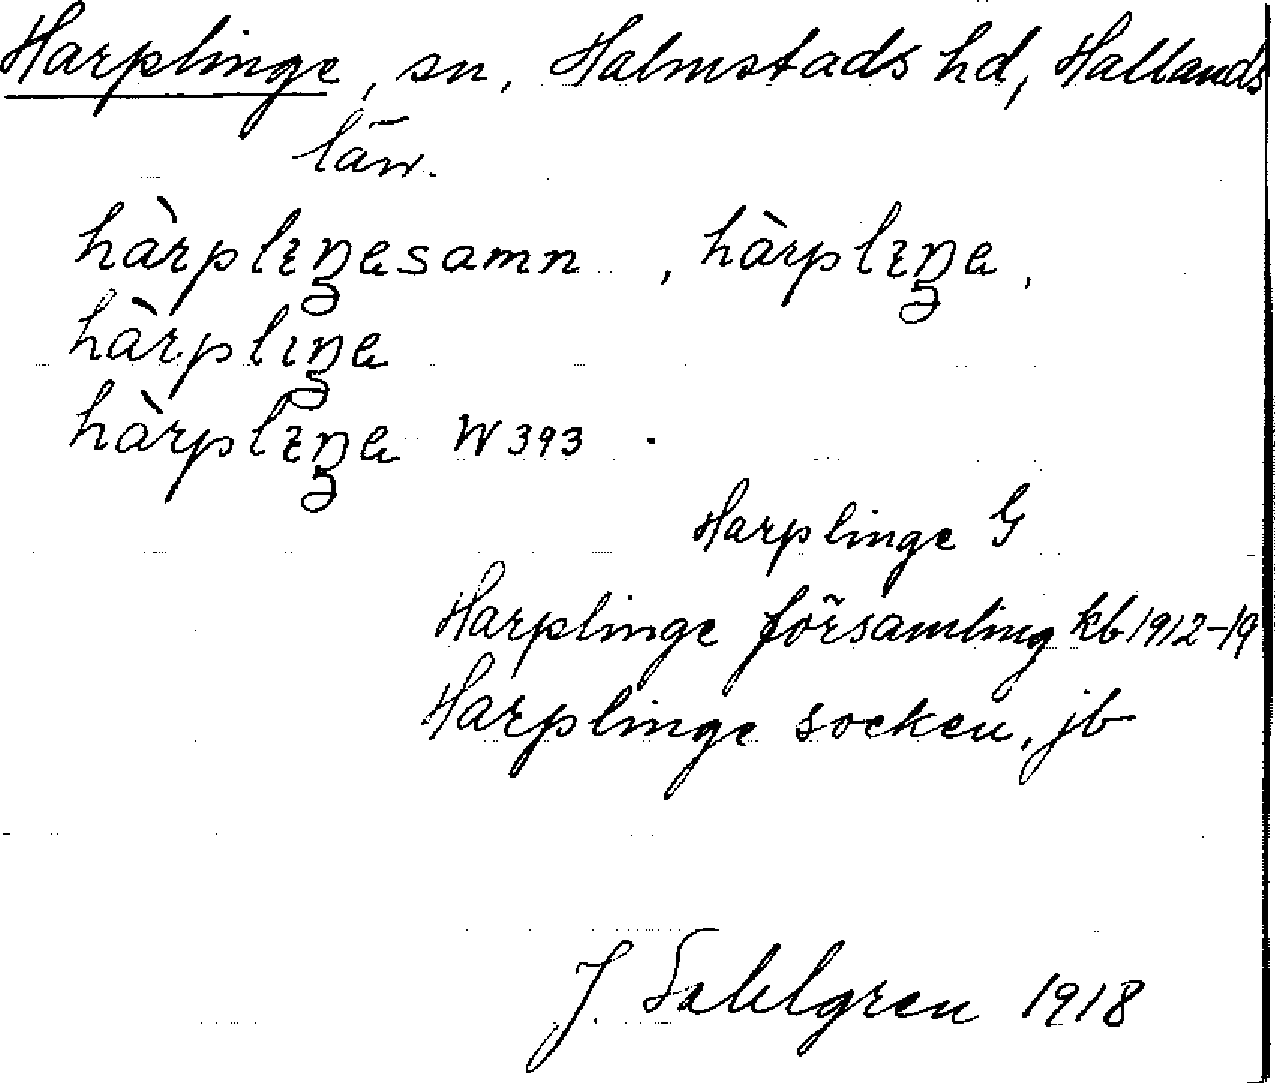 Harplinge, sn, Halmstads hd, Hallands
län.
hàrplıŋesamn, hàrplıŋe,
hàrplıŋe
hàrplıŋe W 393.
Harplinge G
Harplinge församling kb 1912-19
Harplinge socken, jb
J. Sahlgren 1918